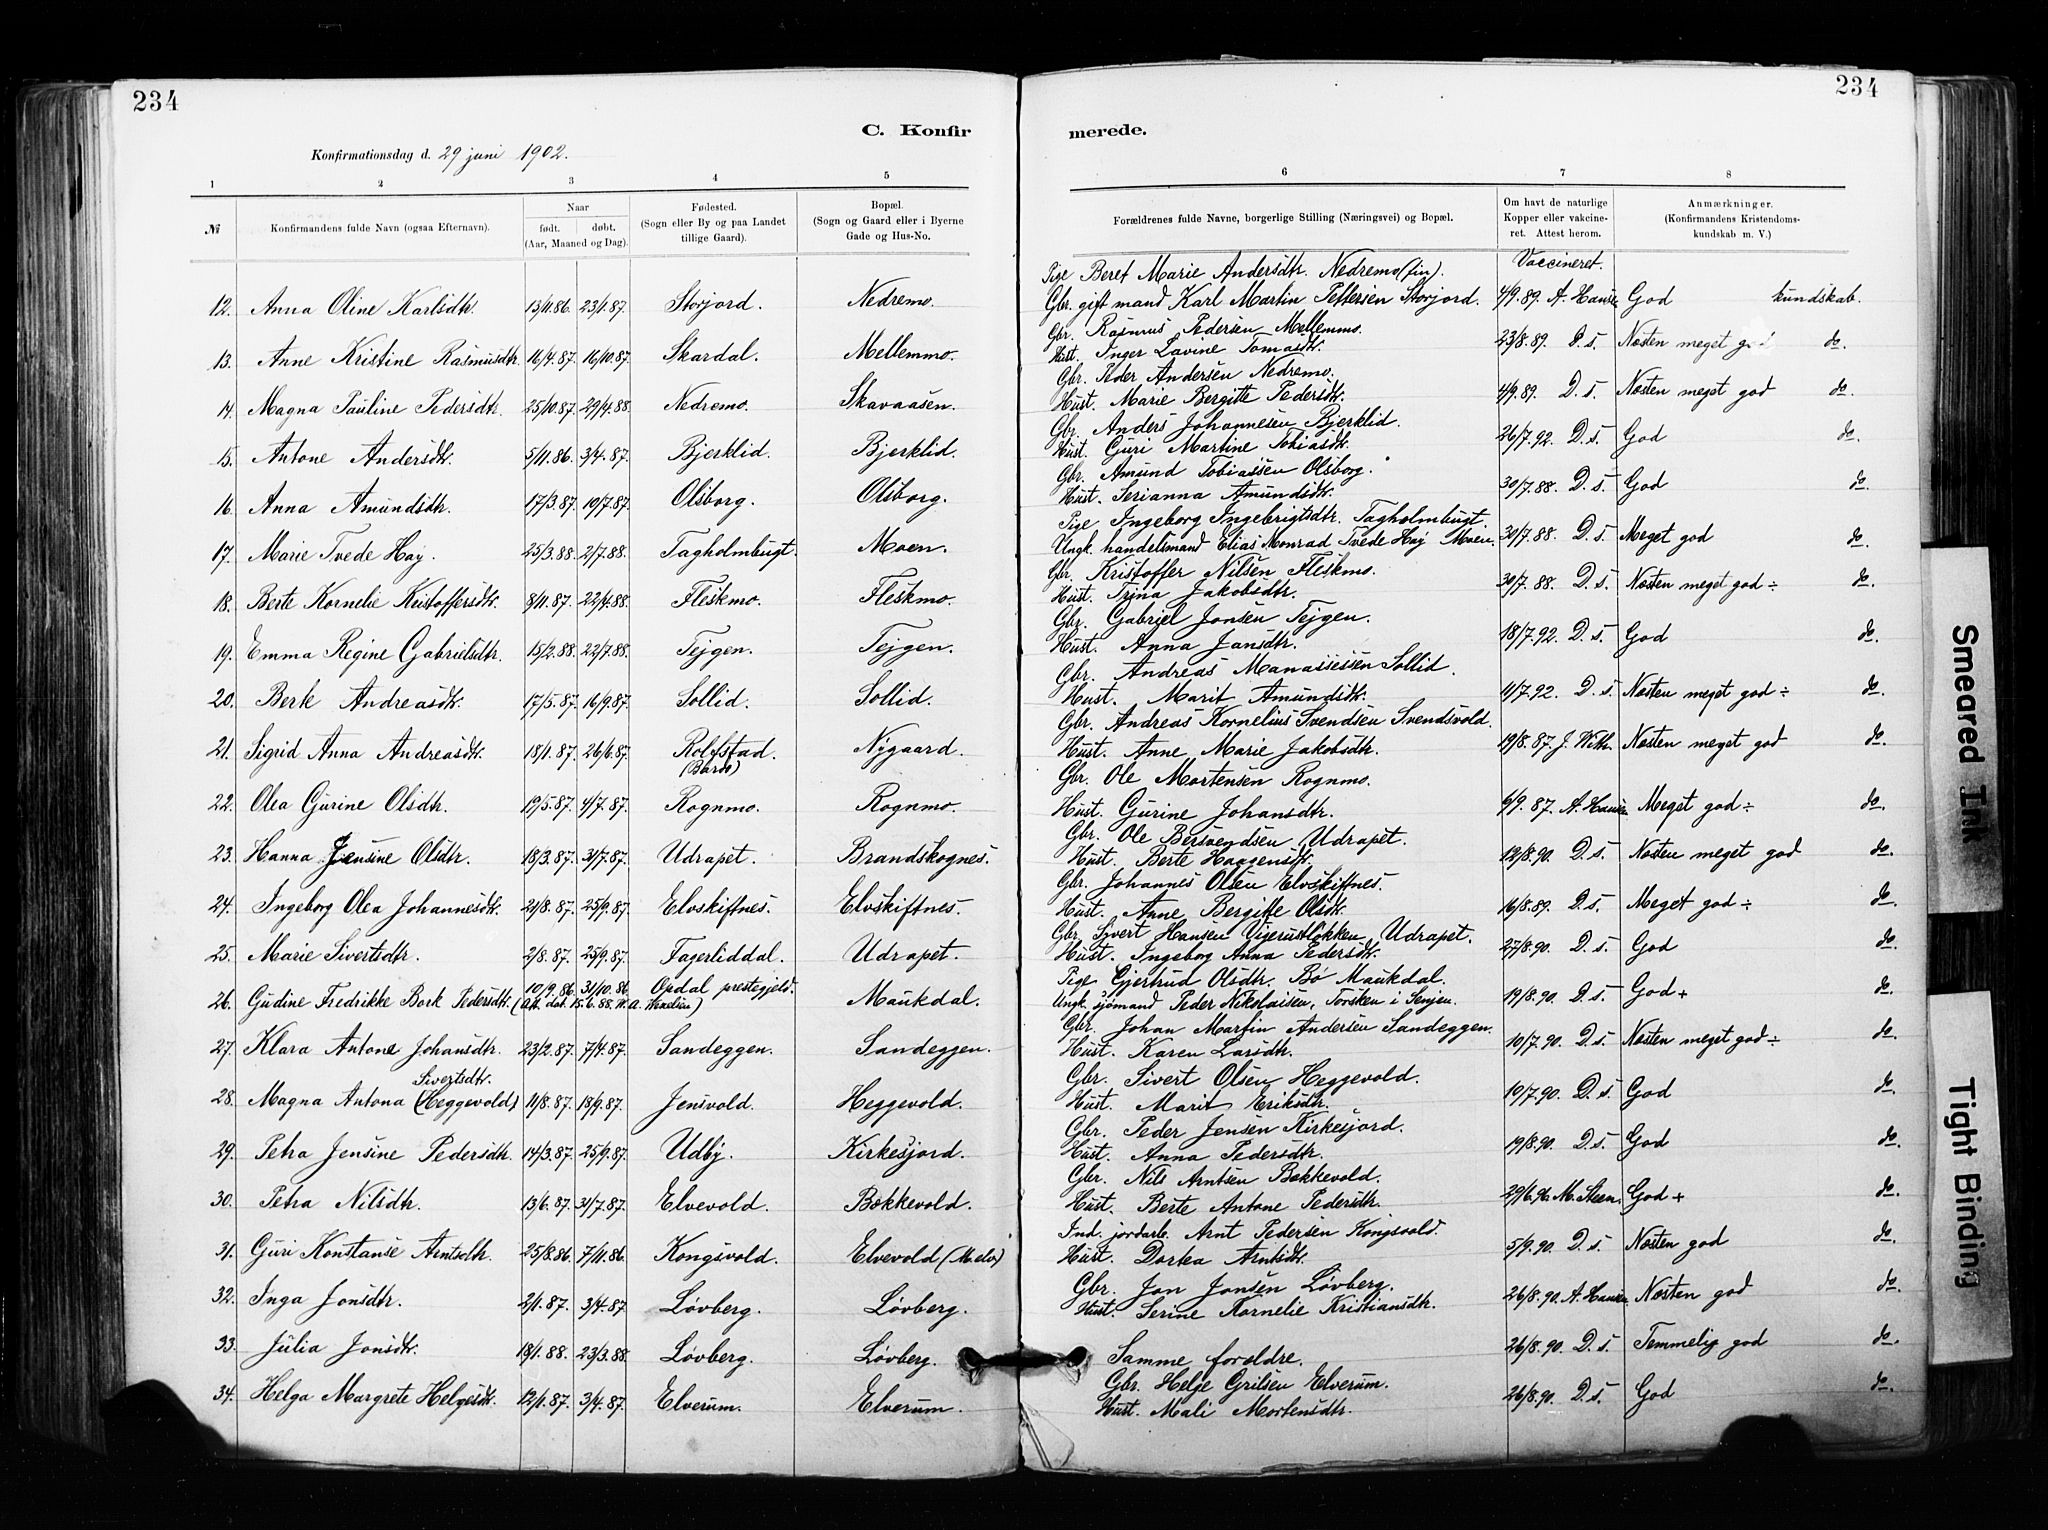 234
234
C. Konfir
merede.
Konfirmationsdag d. 29 juni 1902.
1 2 3 4 5 6 7 8
№ Konfirmandens fulde Navn (ogsaa Efternavn). Naar født. døbt. (Aar, Maaned og Dag). Fødested. (Sogn eller By og paa Landet tillige Gaard). Bopæl. (Sogn og Gaard eller i Byerne Gade og Hus-No. Forældrenes fulde Navne, borgerlige Stilling (Næringsvei) og Bopæl. Om havt de naturlige Kopper eller vakcineret. Attest herom. Anmærkninger. (Konfirmandens Kristendomskundskab m. V.)
Pige Beret Marie Andersdtr. Nedremo (fin). Vaccineret.
12. Anna Oline Karlsdtr. 13/11.86. 23/1.87. Storjord. Nedremo. Gbr. gift mand Karl Martin Pettersen Storjord. 4/9.89. A. Hansen God kundskab.
Gbr. Rasmus Pedersen Mellemmo.
13. Anne Kristine Rasmusdtr. 16/4.87. 16/10.87. Skardal. Mellemmo. Hust. Inger Lavine Tomasdtr. 23/8.89. D. s. Næsten meget god do.
Gbr. Peder Andersen Nedremo.
14. Magna Pauline Pedersdtr. 25/10.87. 29/4.88. Nedremo. Skavaasen. Hust. Marie Bergitte Pedersdtr. 4/9.89. D. s. Næsten meget god do.
Gbr. Anders Johannesen Bjerklid.
15. Antone Andersdtr. 5/11.86. 3/4.87. Bjerklid. Bjerklid. Hust. Guri Martine Tobiasdtr. 26/7.92. D. s. God do.
Gbr. Amund Tobiassen Olsborg.
16. Anna Amundsdtr. 17/3.87. 10/7.87. Olsborg. Olsborg. Hust. Serianna Amundsdtr. 30/7.88. D. s. God do.
Pige Ingeborg Ingebrigtsdtr. Tagholmbugt.
17. Marie Tvede Høy. 25/3.88. 2/7.88. Tagholmbugt. Moen. Ungk. handelsmand Elias Monrad Tvede Høy Moen. 30/7.88. D. s. Meget god do.
Gbr. Kristoffer Nilsen Fleskmo.
18. Berte Kornelie Kristoffersdtr. 8/11.87. 22/4.88. Fleskmo. Fleskmo. Hust. Trina Jakobsdtr. 30/7.88. D. s. Næsten meget god ÷ do.
Gbr. Gabriel Jonsen Tejgen.
19. Emma Regine Gabrielsdtr. 15/2.88. 22/7.88. Tejgen. Tejgen. Hust. Anna Jansdtr. 18/7.92. D. s. God do.
Gbr. Andreas Manassessen Sollid.
20. Berte Andreasdtr. 17/5.87. 16/9.87. Sollid. Sollid. Hust. Marit Amundsdtr. 11/7.92. D. s. Næsten meget god ÷ do.
Gbr. Andreas Kornelius Svendsen Svendsvold.
21. Sigrid Anna Andreasdtr. 18/1.87. 26/6.87. Rolfstad. (Bardo) Nygaard. Hust. Anne Marie Jakobsdtr. 19/8.87. J. Næsten meget god do.
Gbr. Ole Mortensen Rognmo.
22. Olea Gurine Olsdtr. 19/5.87. 4/7.87. Rognmo. Rognmo. Hust. Gurine Johansdtr. 6/9.87. A. Hansen Meget god ÷ do.
Gbr. Ole Bersvendsen Udrapet.
23. Hanna Jensine Olsdtr. 18/3.87. 31/7.87. Udrapet. Brandskognes. Hust. Berte Haagensdtr. 12/8.90. D. s. Næsten meget god do.
Gbr. Johannes Olsen Elvskiftnes.
24. Ingeborg Olea Johannesdtr. 21/8.87. 25/9.87. Elvskiftnes. Elvskiftnes. Hust. Anne Bergitte Olsdtr. 16/8.89. D. s. Meget god ÷ do.
Gbr. Sivert Hansen Vigerustløkken, Udrapet.
25. Marie Sivertsdtr. 2/8.87. 25/9.87. Fagerliddal. Udrapet. Hust. Ingeborg Anna Pedersdtr. 27/8.90. D. s. God do.
10/9.86. 31/10.86. Opdal prestegjeld. Pige Gjertrud Olsdtr. Bø Maukdal.
26. Gudine Fredrikke Bork Pedersdtr. (Att. dat. 15.6.88. W. A. Wexelsen) Maukdal. Ungk. sjømand Peder Nikolaisen, Torsken i Senjen. 19/8.90. D. s. God + do.
Gbr. Johan Martin Andersen Sandeggen.
27. Klara Antone Johansdtr. 23/2.87. 7/4.87. Sandeggen. Sandeggen. Hust. Karen Larsdtr. 10/7.90. D. s. Næsten meget god ÷ do.
Sivertsdtr. Gbr. Sivert Olsen Heggevold.
28. Magna Antona (Heggevold) 11/8.87. 18/9.87. Jensvold. Heggevold. Hust. Marit Eriksdtr. 10/7.90. D. s. God do.
Gbr. Peder Jensen Kirkesjord.
29. Petra Jensine Pedersdtr. 14/3.87. 25/9.87. Udby. Kirkesjord. Hust. Anna Pedersdtr. 19/8.90. D. s. God do.
Gbr. Nils Arntsen Bækkevold.
30. Petra Nilsdtr. 13/6.87. 31/7.87. Elvevold. Bækkevold. Hust. Berte Antone Pedersdtr. 29/6.96. M. Steen. God + do.
Ind. jordarb. Arnt Pedersen Kongsvold.
31. Guri Konstanse Arntsdtr. 25/8.86. 7/11.86. Kongsvold. Elvevold (M.elv) Hust. Dortea Arntsdtr. 5/9.90. D. s. Næsten god do.
Gbr. Jon Jonsen Løvberg.
32. Inga Jonsdtr. 2/1.87. 3/4.87. Løvberg. Løvberg. Hust. Serine Kornelie Kristiansdtr. 26/8.90. A. Hansen Næsten god do.
33. Julia Jonsdtr. 18/1.88. 23/3.88. Løvberg. Løvberg. Samme forældre. 26/8.90. D. s. Temmelig god do.
Gbr. Helge Grilsen Elverum.
34. Helga Margrete Helgesdtr. 12/1.87. 3/4.87. Elverum. Elverum. Hust. Mali Mortensdtr. 26/8.90. D. s. God do.
Smeared Ink
Tight Binding